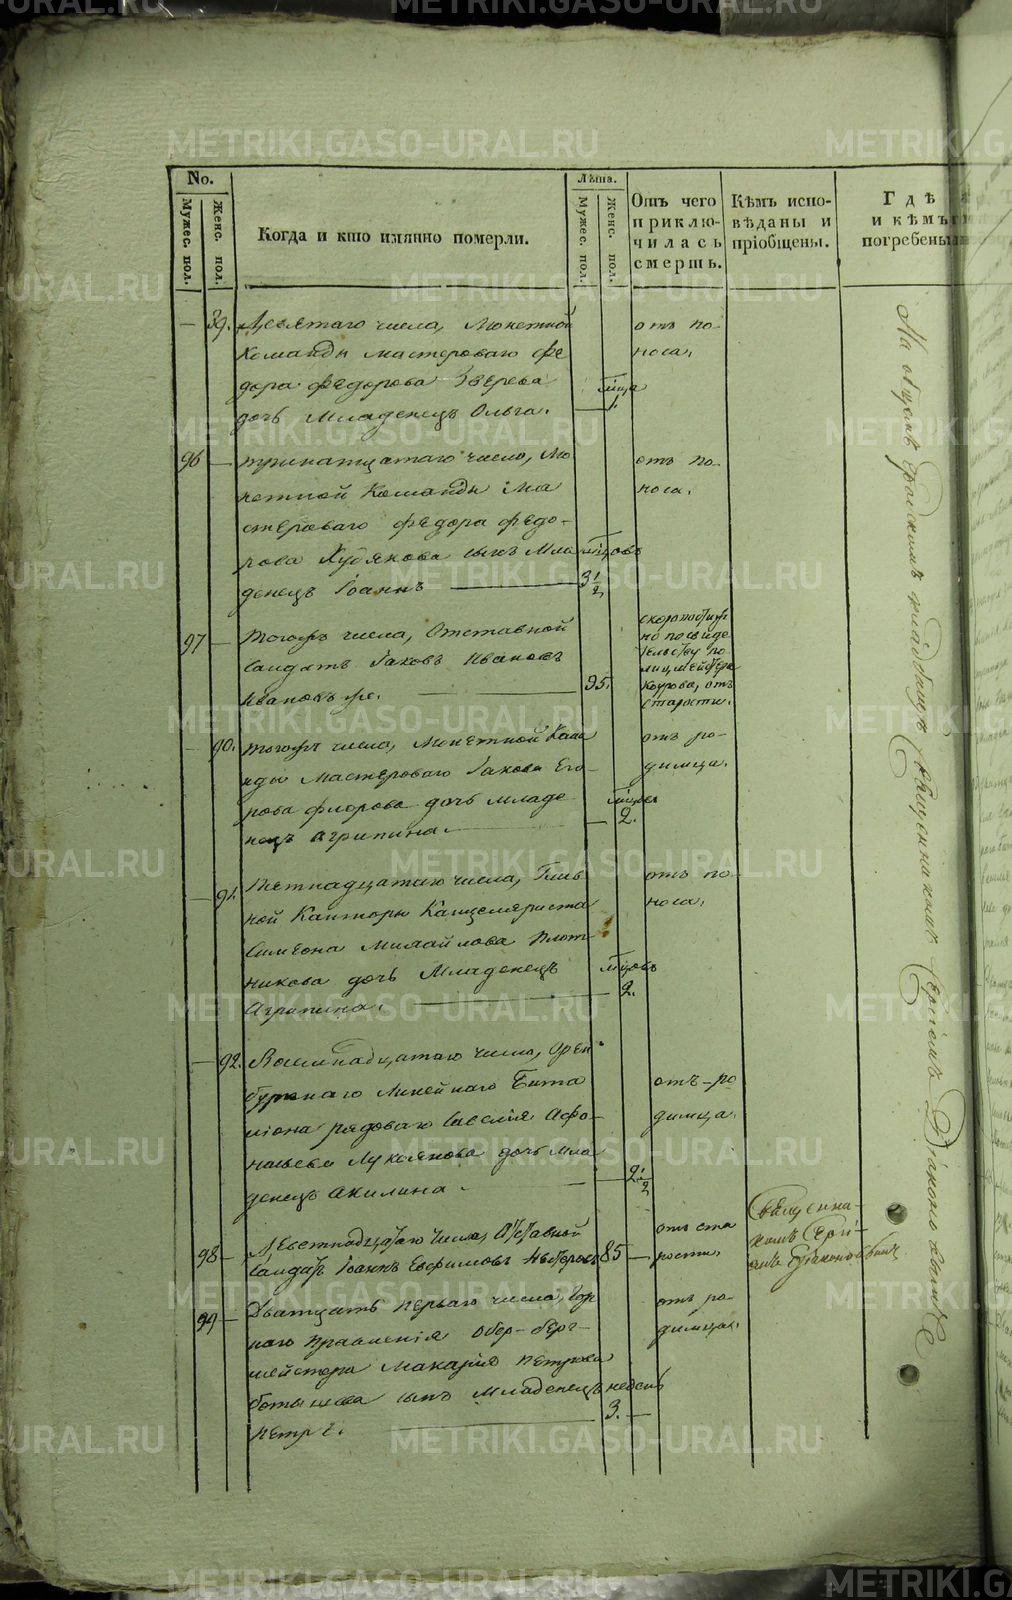 METRIKI.GASO-URAL.RU
No.
Мужес. пол.
Женс. пол.
Когда и кто имянно померли.
Лѣта.
Мужес. пол.
Женс. пол.
Отъ чего
приклю-
чилась
смерть.
Кѣмъ испо-
вѣданы и
пріобщены.
Гдѣ
и кѣмъ
погребены
— 89. Девятаго числа, Монетной
Команды мастероваго Фе
дора Федорова Зверева
дочь Младенецъ Ольга.
мѣсяца
— 1.
отъ по-
носа.
96 — тринатцатаго число, Мо
нетной Команды Ма
стероваго Федора Федо-
рова Худякова сынъ Мла
денецъ Іоаннъ
мѣсяцовъ
3 1/2
отъ по-
носа.
97 — тогожъ числа, Отставной
Салдатъ Іаковъ Ивановъ
Ивановъ же.
95.
скоропостиж
но по свиде
тельству по
лицмейстера
Коурова, отъ
старости.
— 90. тогожъ числа, Монетной Кома
нды Мастероваго Іакова Его-
рова Флорова дочь младе
нецъ Агрипина.
— 2.
отъ ро-
димца.
— 91. Пятнадцатаго числа, Глав
ной Канторы Канцеляриста
Симеона Михайлова Плот-
никова дочь Младенецъ
Агрипина.
мѣсяцовъ
— 2.
отъ по-
носа.
— 92. Восемнадцатаго числа, Орен
бургскаго Линейнаго Бата
ліона рядоваго Савелія Афо-
насьева Лукоянова дочь Мла
денецъ Акилина.
— 2 1/2
отъ ро
димца.
98 — Девятнадцатаго Числа, Отставной
Салдатъ Іоаннъ Евфимовъ
85 —
отъ ста
рости.
Священни-
комъ Сергі-
емъ
99 — Дватцать перваго числа, Гор
наго Правленія Обер-берг-
мейстера Макарія Петрова
сынъ Младенецъ
Петръ.
недель
3. —
отъ ро-
димца.
На общемъ Градскомъ кладбищѣ Священникомъ Сергіемъ Діаконо